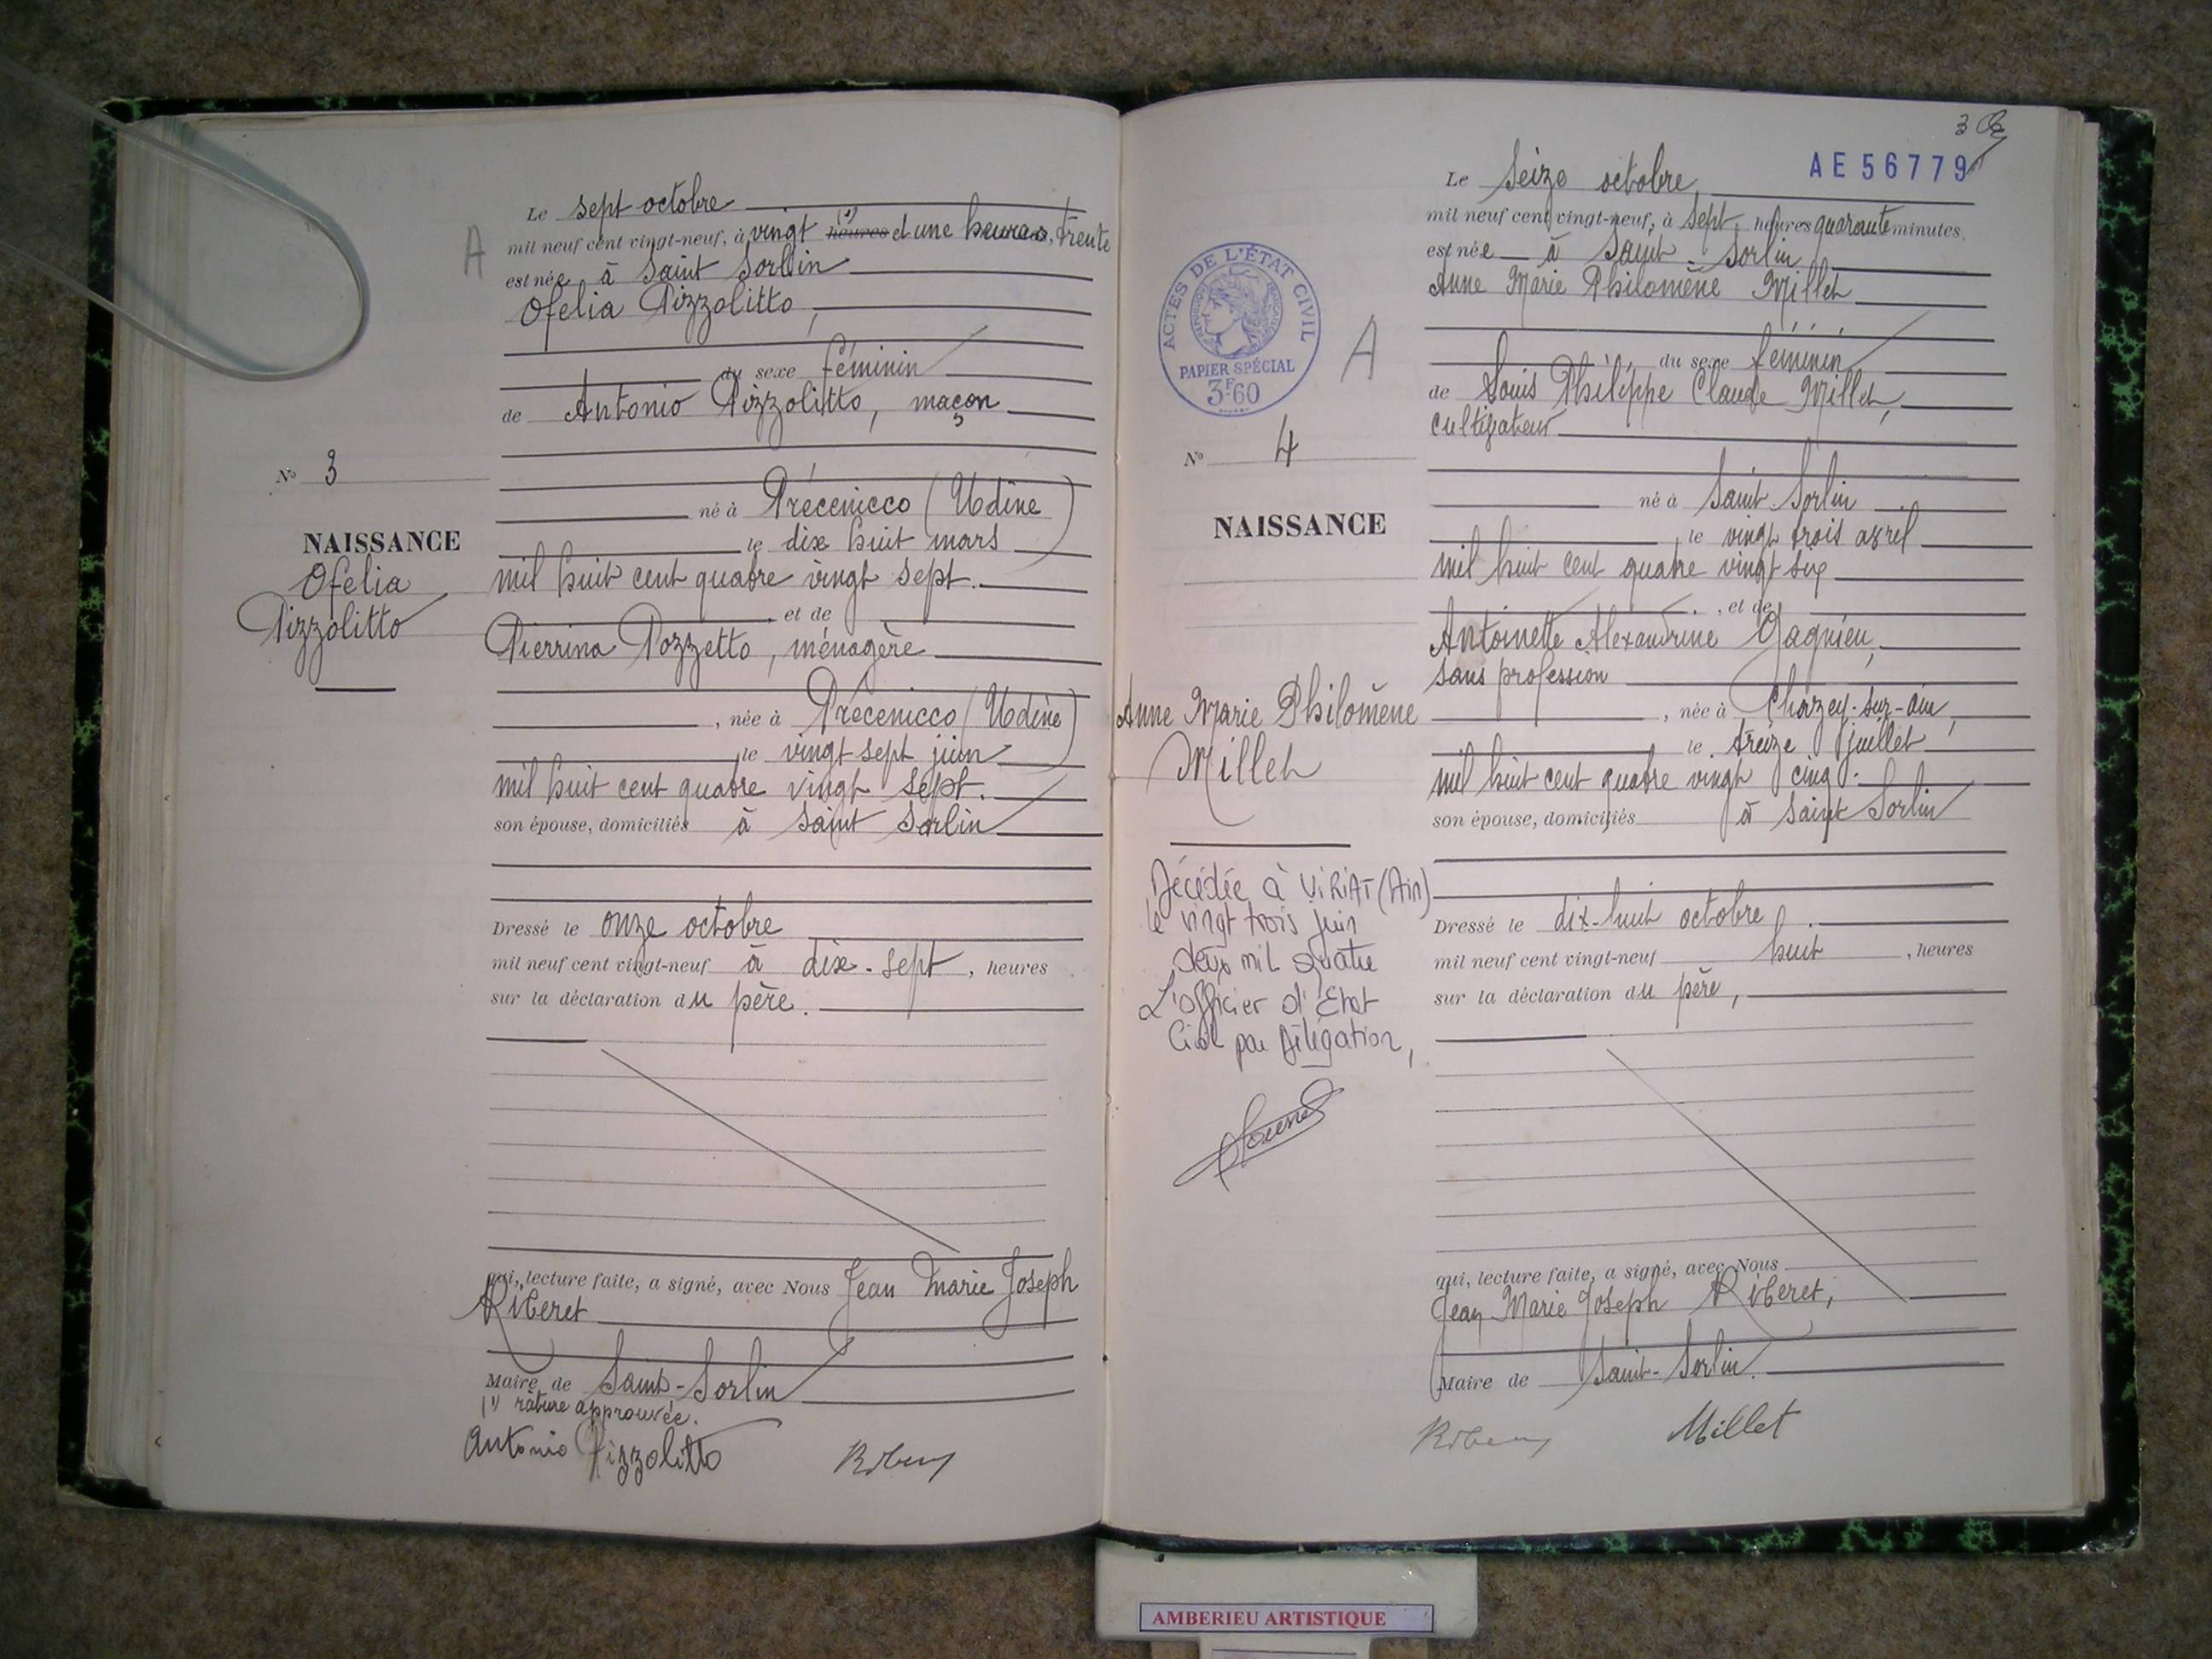 Le sept octobre
mil neuf cent vingt-neuf, à vingt (1) heures et une heures, trente
est née à Saint Sorlin
Ofelia Pizzolitto,
du sexe féminin
de Antonio Pizzolitto, maçon
né à Précenicco (Udine)
le dix huit mars
mil huit cent quatre vingt sept.
, et de
Pierrina Pozzetto, ménagère
, née à Précenicco (Udine)
le vingt sept juin
mil huit cent quatre vingt sept.
son épouse, domiciliés à Saint Sorlin
Dressé le onze octobre
mil neuf cent vingt-neuf à dix-sept, heures
sur la déclaration du père.
qui, lecture faite, a signé, avec Nous Jean Marie Joseph
Riberet
Maire de Saint-Sorlin
(1) rature approuvée.
Antonio Pizzolitto
A
No 3
NAISSANCE
Ofelia
Pizzolitto
3
AE 56779
Le seize octobre,
mil neuf cent vingt-neuf, à sept heures quarante minutes,
est née à Saint-Sorlin
Anne Marie Philomène Millet
du sexe féminin
de Louis Philippe Claude Millet,
cultivateur
né à Saint-Sorlin
le vingt trois avril
mil huit cent quatre vingt six
, et de
Antoinette Alexandrine Gagnieu,
sans profession
, née à Chazey-sur-ain,
le treize juillet
mil huit cent quatre vingt cinq.
son épouse, domiciliés à Saint Sorlin
Dressé le dix-huit octobre
mil neuf cent vingt-neuf huit, heures
sur la déclaration du père,
qui, lecture faite, a signé, avec Nous
Jean Marie Joseph Riberet,
Maire de Saint-Sorlin.
Millet
ACTES DE L'ÉTAT CIVIL
RÉPUBLIQUE FRANÇAISE
PAPIER SPÉCIAL
3F60
A
No 4
NAISSANCE
Anne Marie Philomène
Millet
Décédée à VIRIAT (Ain)
le vingt trois juin
deux mil quatre
L'officier d'Etat
Civil par délégation,
AMBERIEU ARTISTIQUE